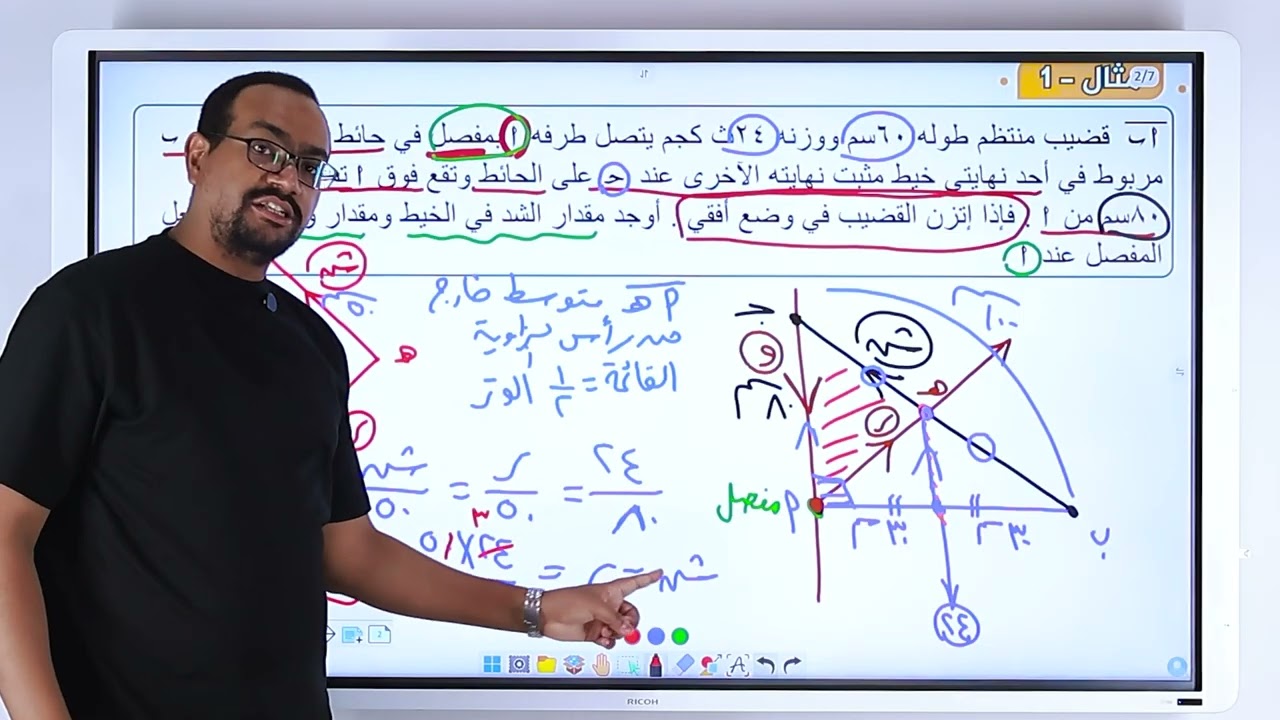 مثال - 1
2/7
أب قضيب منتظم طوله ٦٠سم ووزنه ٢٤ث كجم يتصل طرفه أ بمفصل في حائط
مربوط في أحد نهايتي خيط مثبت نهايته الآخرى عند حـ على الحائط وتقع فوق أ
٨٠سم من أ . فإذا إتزن القضيب في وضع أفقي . أوجد مقدار الشد في الخيط ومقدار
المفصل عند أ
أهـ متوسط خارج
من رأس الزاوية
القائمة = ١/٢ الوتر
٢٤/٨٠ = ر/٥٠ = ش/٥٠
ش = ر =
١٠٠سم
ش
و
٨٠سم
هـ
ر
مفصل أ
٣٠سم
٣٠سم
ب
٢٤
ش
هـ
ر
RICOH